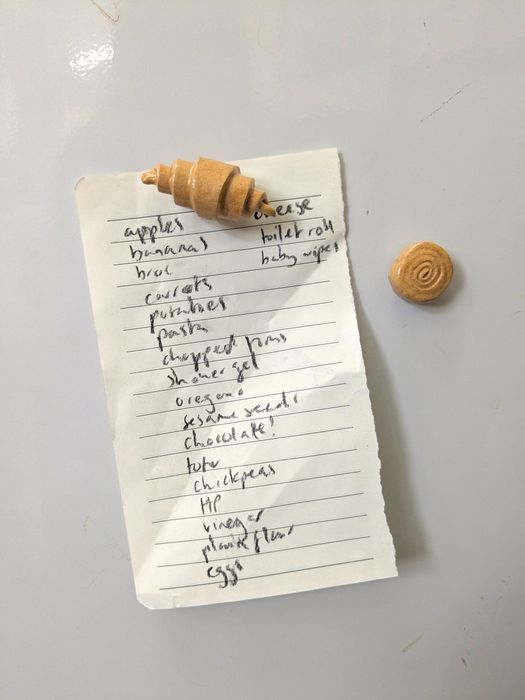 apples
bananas
broc
carrots
potatoes
pasta
chopped toms
shower gel
oregano
sesame seeds
chocolate!
tofu
chickpeas
HP
vinegar
plain flour
eggs
toilet roll
baby wipes